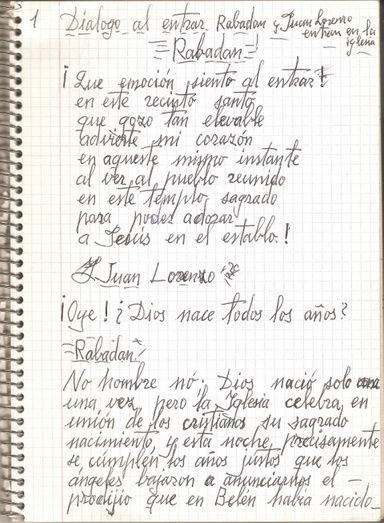 1 Dialogo al entrar Rabadan y Juan Lorenzo
entran en la
iglesia
Rabadan
¡Que emoción siento al entrar!
en este recinto santo
que gozo tan elevable
advierte mi corazón
en aqueste mismo instante
al ver al pueblo reunido
en este templo sagrado
para poder adorar
a Jesús en el establo!
Juan Lorenzo
¡Oye! ¿Dios nace todos los años?
Rabadan
No hombre nó. Dios nació solo
una vez, pero la Iglesia celebra en
unión de los cristianos su sagrado
nacimiento, y esta noche, precisamente
se cumplen los años justos que los
angeles bajaron a anunciarnos el
prodijio que en Belén había nacido